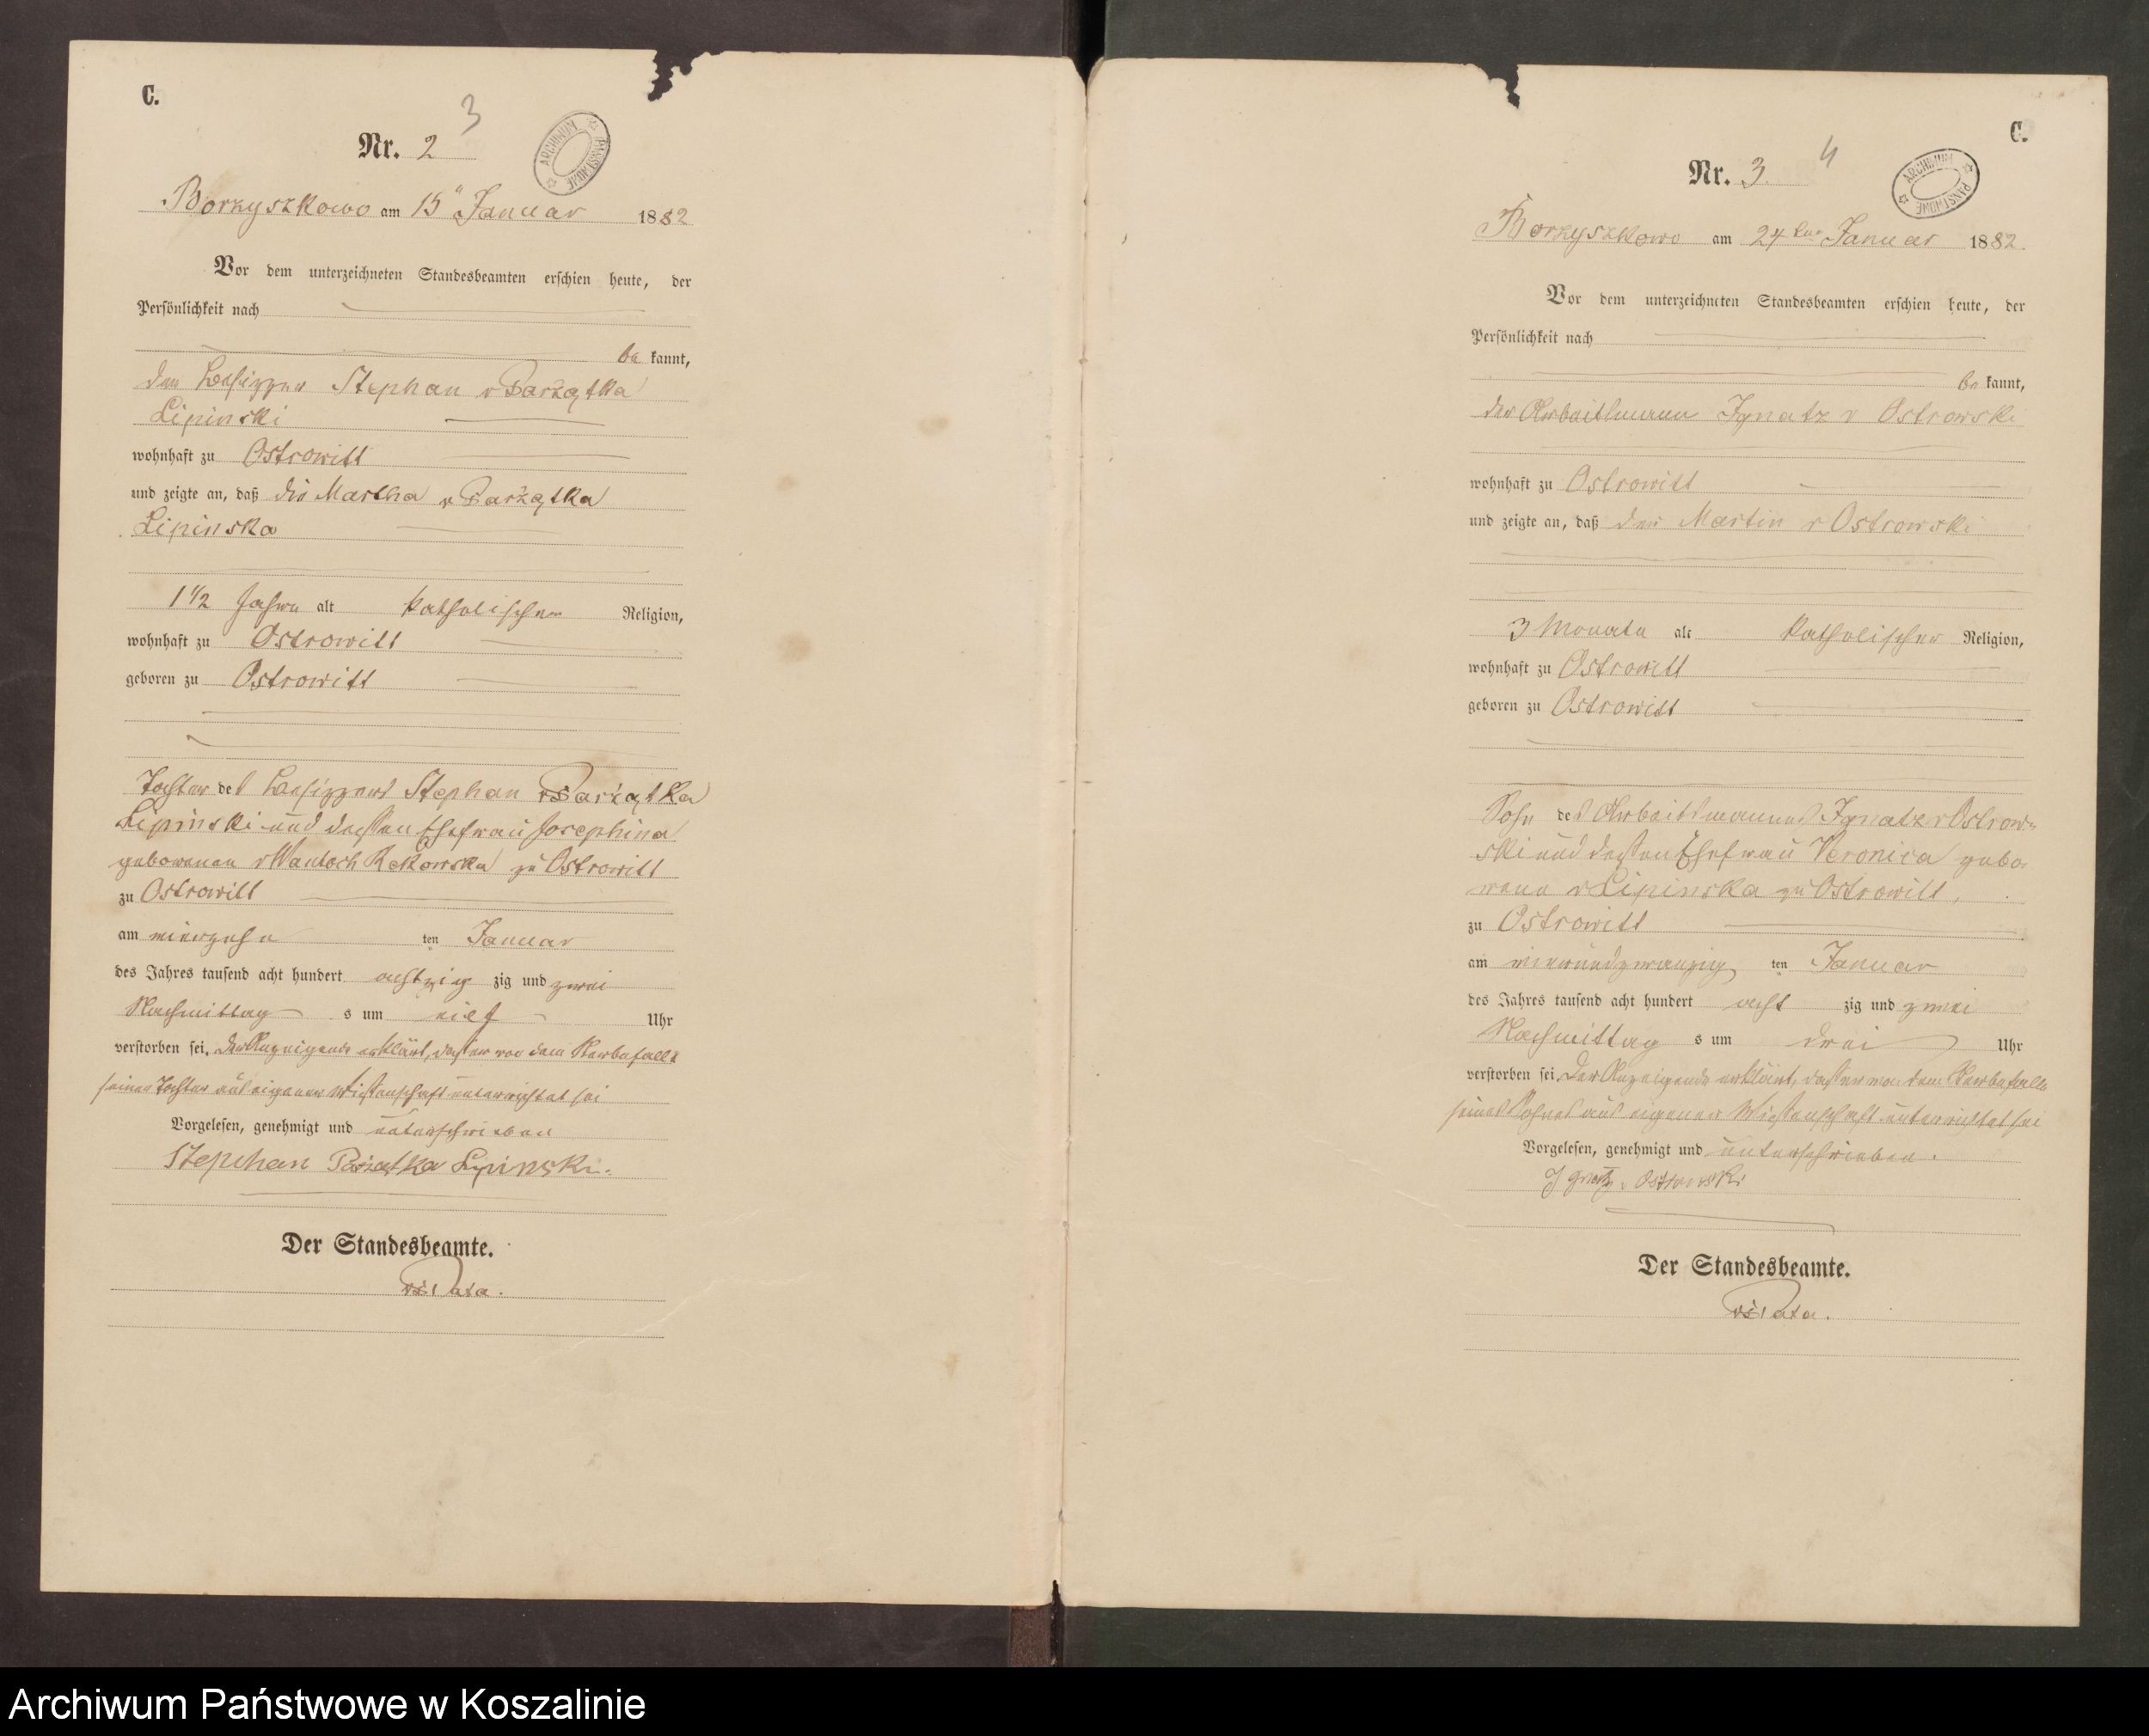 C.
3
Nr. 2
ARCHIWUM PAŃSTWOWE
Borzyszkowo am 15" Januar 1882
Vor dem unterzeichneten Standesbeamten erschien heute, der
Persönlichkeit nach
be kannt,
der Besitzer Stephan v Parżątka
Lipinski
wohnhaft zu Ostrowitt
und zeigte an, daß die Martha v Parżątka
Lipinska
1 1/2 Jahre alt katholischer Religion,
wohnhaft zu Ostrowitt
geboren zu Ostrowitt
Tochter des Besitzers Stephan v Parżątka
Lipinski und dessen Ehefrau Josephina
geborenen v Wantoch Rekowska zu Ostrowitt
zu Ostrowitt
am vierzehn ten Januar
des Jahres tausend acht hundert achtzig zig und zwei
Nachmittag s um Uhr
verstorben sei. Der Anzeigende erklärt, daß er von dem Sterbefalle
seiner Tochter aus eigener Wissenschaft unterrichtet sei
Vorgelesen, genehmigt und unterschrieben
Stephan Parżatka Lipinski.
Der Standesbeamte.
C.
4
Nr. 3.
ARCHIWUM PAŃSTWOWE
Borzyszkowo am 24 ten Januar 1882.
Vor dem unterzeichneten Standesbeamten erschien heute, der
Persönlichkeit nach
be kannt,
der Arbeitsmann Ignatz v Ostrowski
wohnhaft zu Ostrowitt
und zeigte an, daß der Martin v Ostrowski
3 Monate alt katholischer Religion,
wohnhaft zu Ostrowitt
geboren zu Ostrowitt
Sohn des Arbeitsmannes Ignatz v Ostrow-
ski und dessen Ehefrau Veronica gebo-
rene v Lipinska zu Ostrowitt,
zu Ostrowitt
am vierundzwanzig ten Januar
des Jahres tausend acht hundert acht zig und zwei
Nachmittag s um drei Uhr
verstorben sei. Der Anzeigende erklärt, daß er von dem Sterbefalle
seines Sohnes aus eigener Wissenschaft unterrichtet sei
Vorgelesen, genehmigt und unterschrieben.
Ignatz v Ostrowski
Der Standesbeamte.
Archiwum Państwowe w Koszalinie